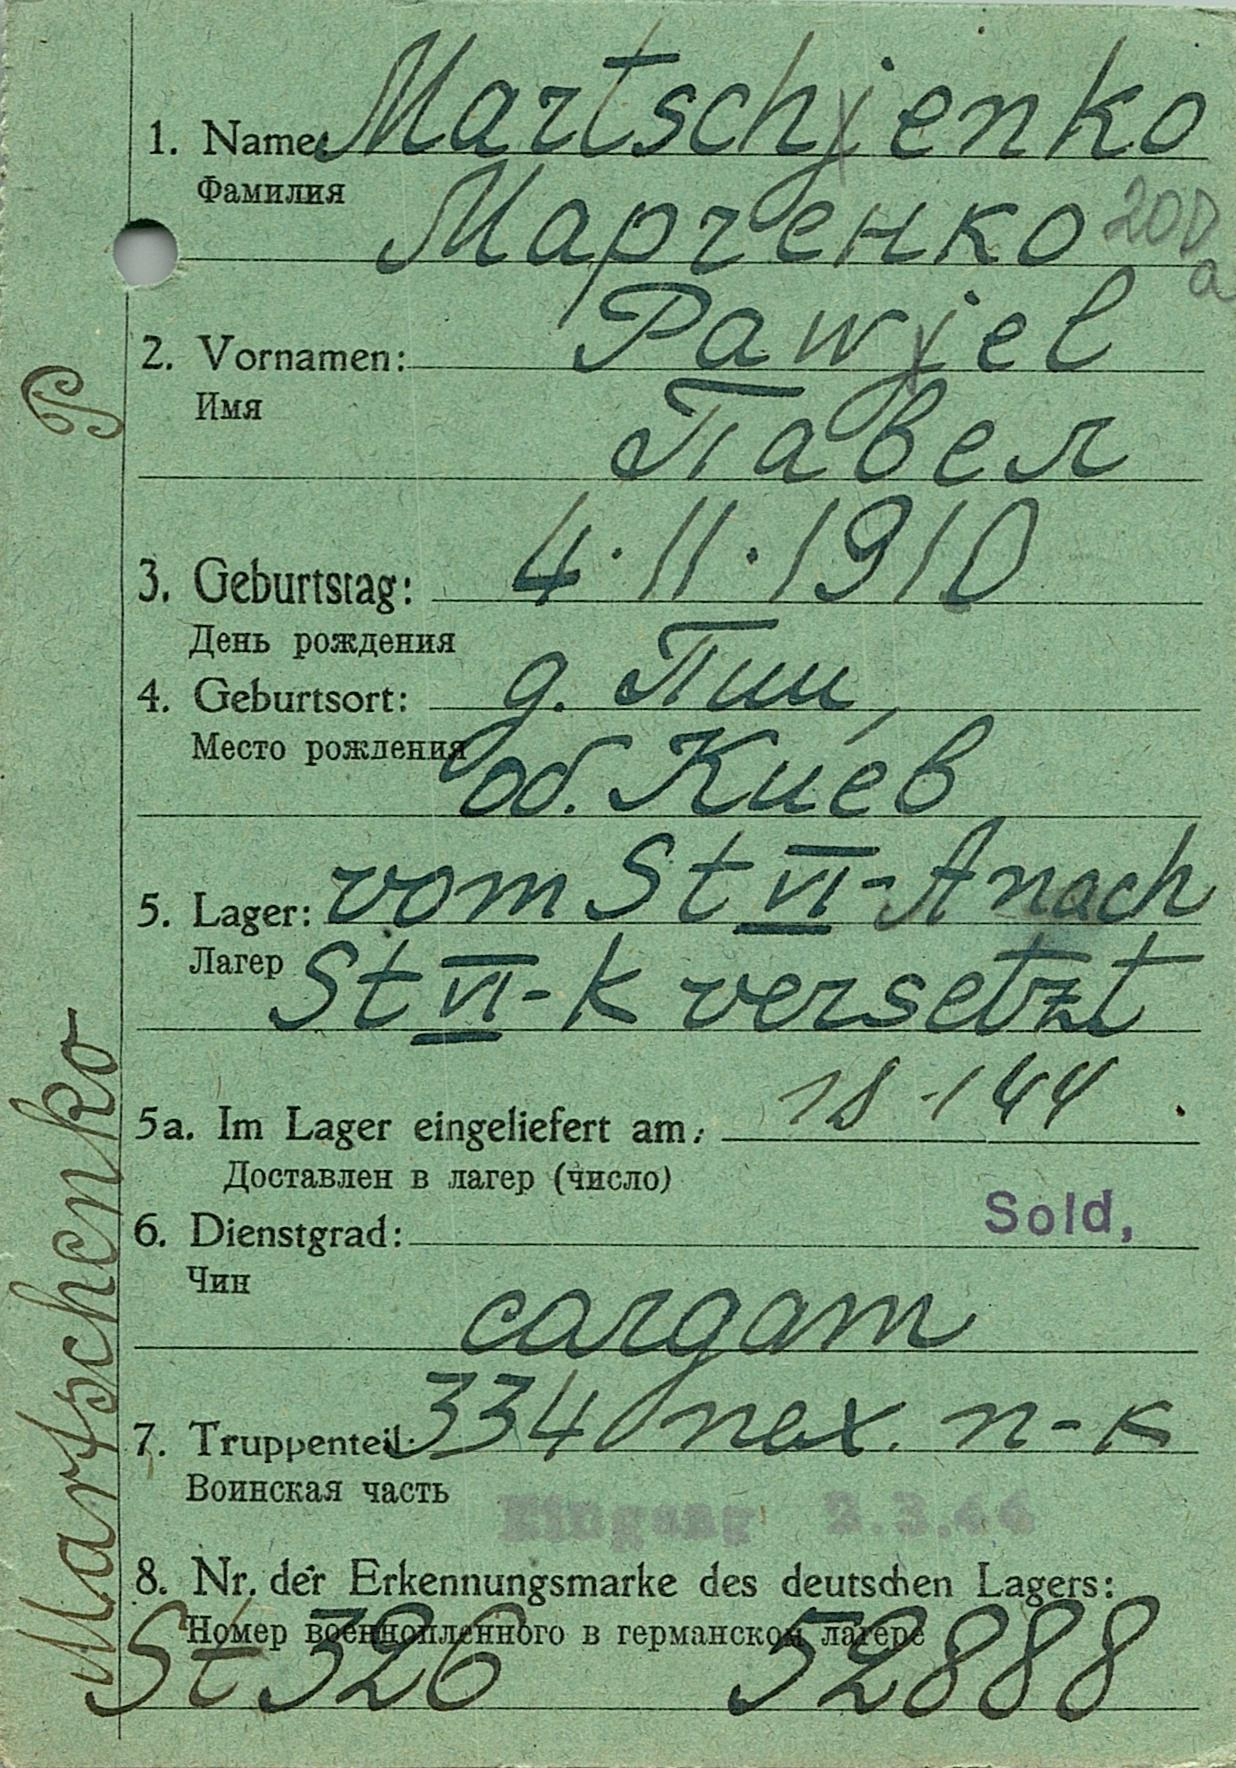 1. Name: Martschjenko
Фамилия
Марченко
200
a
2. Vornamen: Pawjel
Имя
Павел
3. Geburtstag: 4.11.1910
День рождения
4. Geburtsort: д. Пии,
Место рождения
об. Киев
5. Lager: vom St VI-A nach
Лагер St VI-K versetzt
5a. Im Lager eingeliefert am: 18-1 44
Доставлен в лагер (число)
6. Dienstgrad: Sold,
Чин
солдат
7. Truppenteil: 334 пех. п-к
Воинская часть
Eingang 2.3.44
8. Nr. der Erkennungsmarke des deutschen Lagers:
Номер военнопленного в германском лагере
St 326 52888
Martschenko P